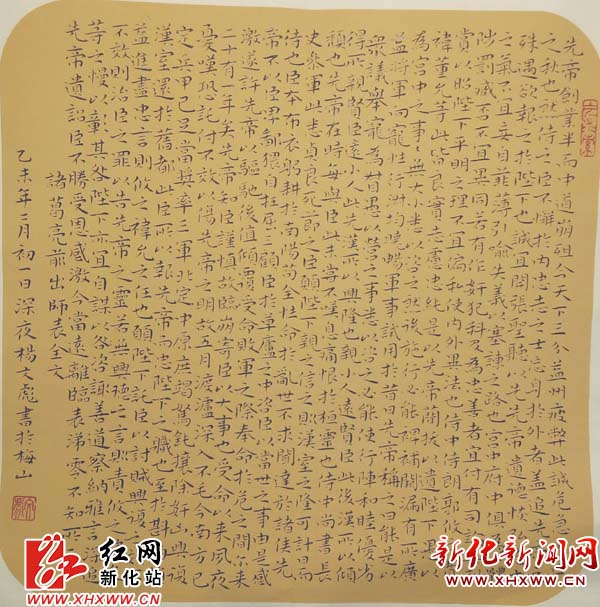 先帝創業半而中道崩殂今天下三分益州疲弊此誠危急
之秋也然侍之臣不懈於内忠志之士忘身於外者盖追先
殊遇欲報之於陛下也誠宜開張聖聽以光先帝遺德恢
之氣不宜妄自菲薄引喻失義以塞諫之路也宫中府中俱為
陟罰臧否不宜異同若有作奸犯科及為忠善者宜付有司
賞以昭陛下平明之理不宜偏私使内外異法也侍中侍郎郭攸
禕董允等此皆良實志慮忠純是以先帝蕑拔以遺陛下愚以
為宫中之事事無大小悉以咨之然後施行必能裨補闕漏有所廣
益將軍向寵性行淑均曉暢軍事試用於昔日先帝稱之曰能是以
衆議舉寵為督愚以營之事悉以咨之必能使行陣和睦優劣
得所親賢臣遠小人此先漢所以興隆也親小人遠賢臣此後漢所以傾
頹也先帝在時每與臣此未嘗不嘆息痛恨於桓靈也侍中尚書長
史參軍此悉貞良死節之臣願陛下親之信之則漢室之隆可計日而
待也臣本布衣躬耕於南陽苟全性命於亂世不求聞達於諸侯先
帝不以臣卑鄙猥自枉屈三顧臣於草廬之中咨臣以當世之事由是感
激遂許先帝以驅馳後值傾覆受命敗軍之際奉命於危之間尒來
二十有一年矣先帝知臣謹慎故臨崩寄臣以大事也受命以來夙夜
憂嘆恐託付不效以傷先帝之明故五月渡瀘深入不毛今南方已
定兵甲已足當獎率三軍北定中原庶竭駑鈍攘除奸凶興復
漢室還於舊都此臣所以報先帝而忠陛下之職也至於斟
益進盡忠言則攸之禕允之任也願陛下託臣以討賊興復之
不效則治臣之罪以告先帝之靈若無興德之言則責攸之
等之慢以彰其咎陛下亦宜自謀以咨諏善道察納雅言深追
先帝遺詔臣不勝受恩感激今當遠離臨表涕零不知所
諸葛亮前出師表全文
乙未年二月初一日深夜楊文彪書於梅山
红网
新化站
WWW.XHXWW.CN
新化新闻网
WWW.XHXWW.CN